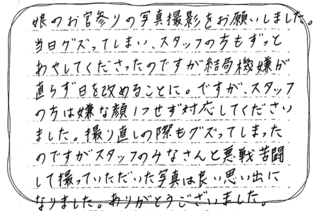 娘のお宮参りの写真撮影をお願いしました。
当日グズってしまい、スタッフの方もずっと
あやしてくださったのですが結局機嫌が
直らず日を改めることに。ですが、スタッフ
の方は嫌な顔1つせず対応してください
ました。撮り直しの際もグズってしまった
のですがスタッフのみなさんと悪戦苦闘
して撮っていただいた写真は良い思い出に
なりました。ありがとうございました。